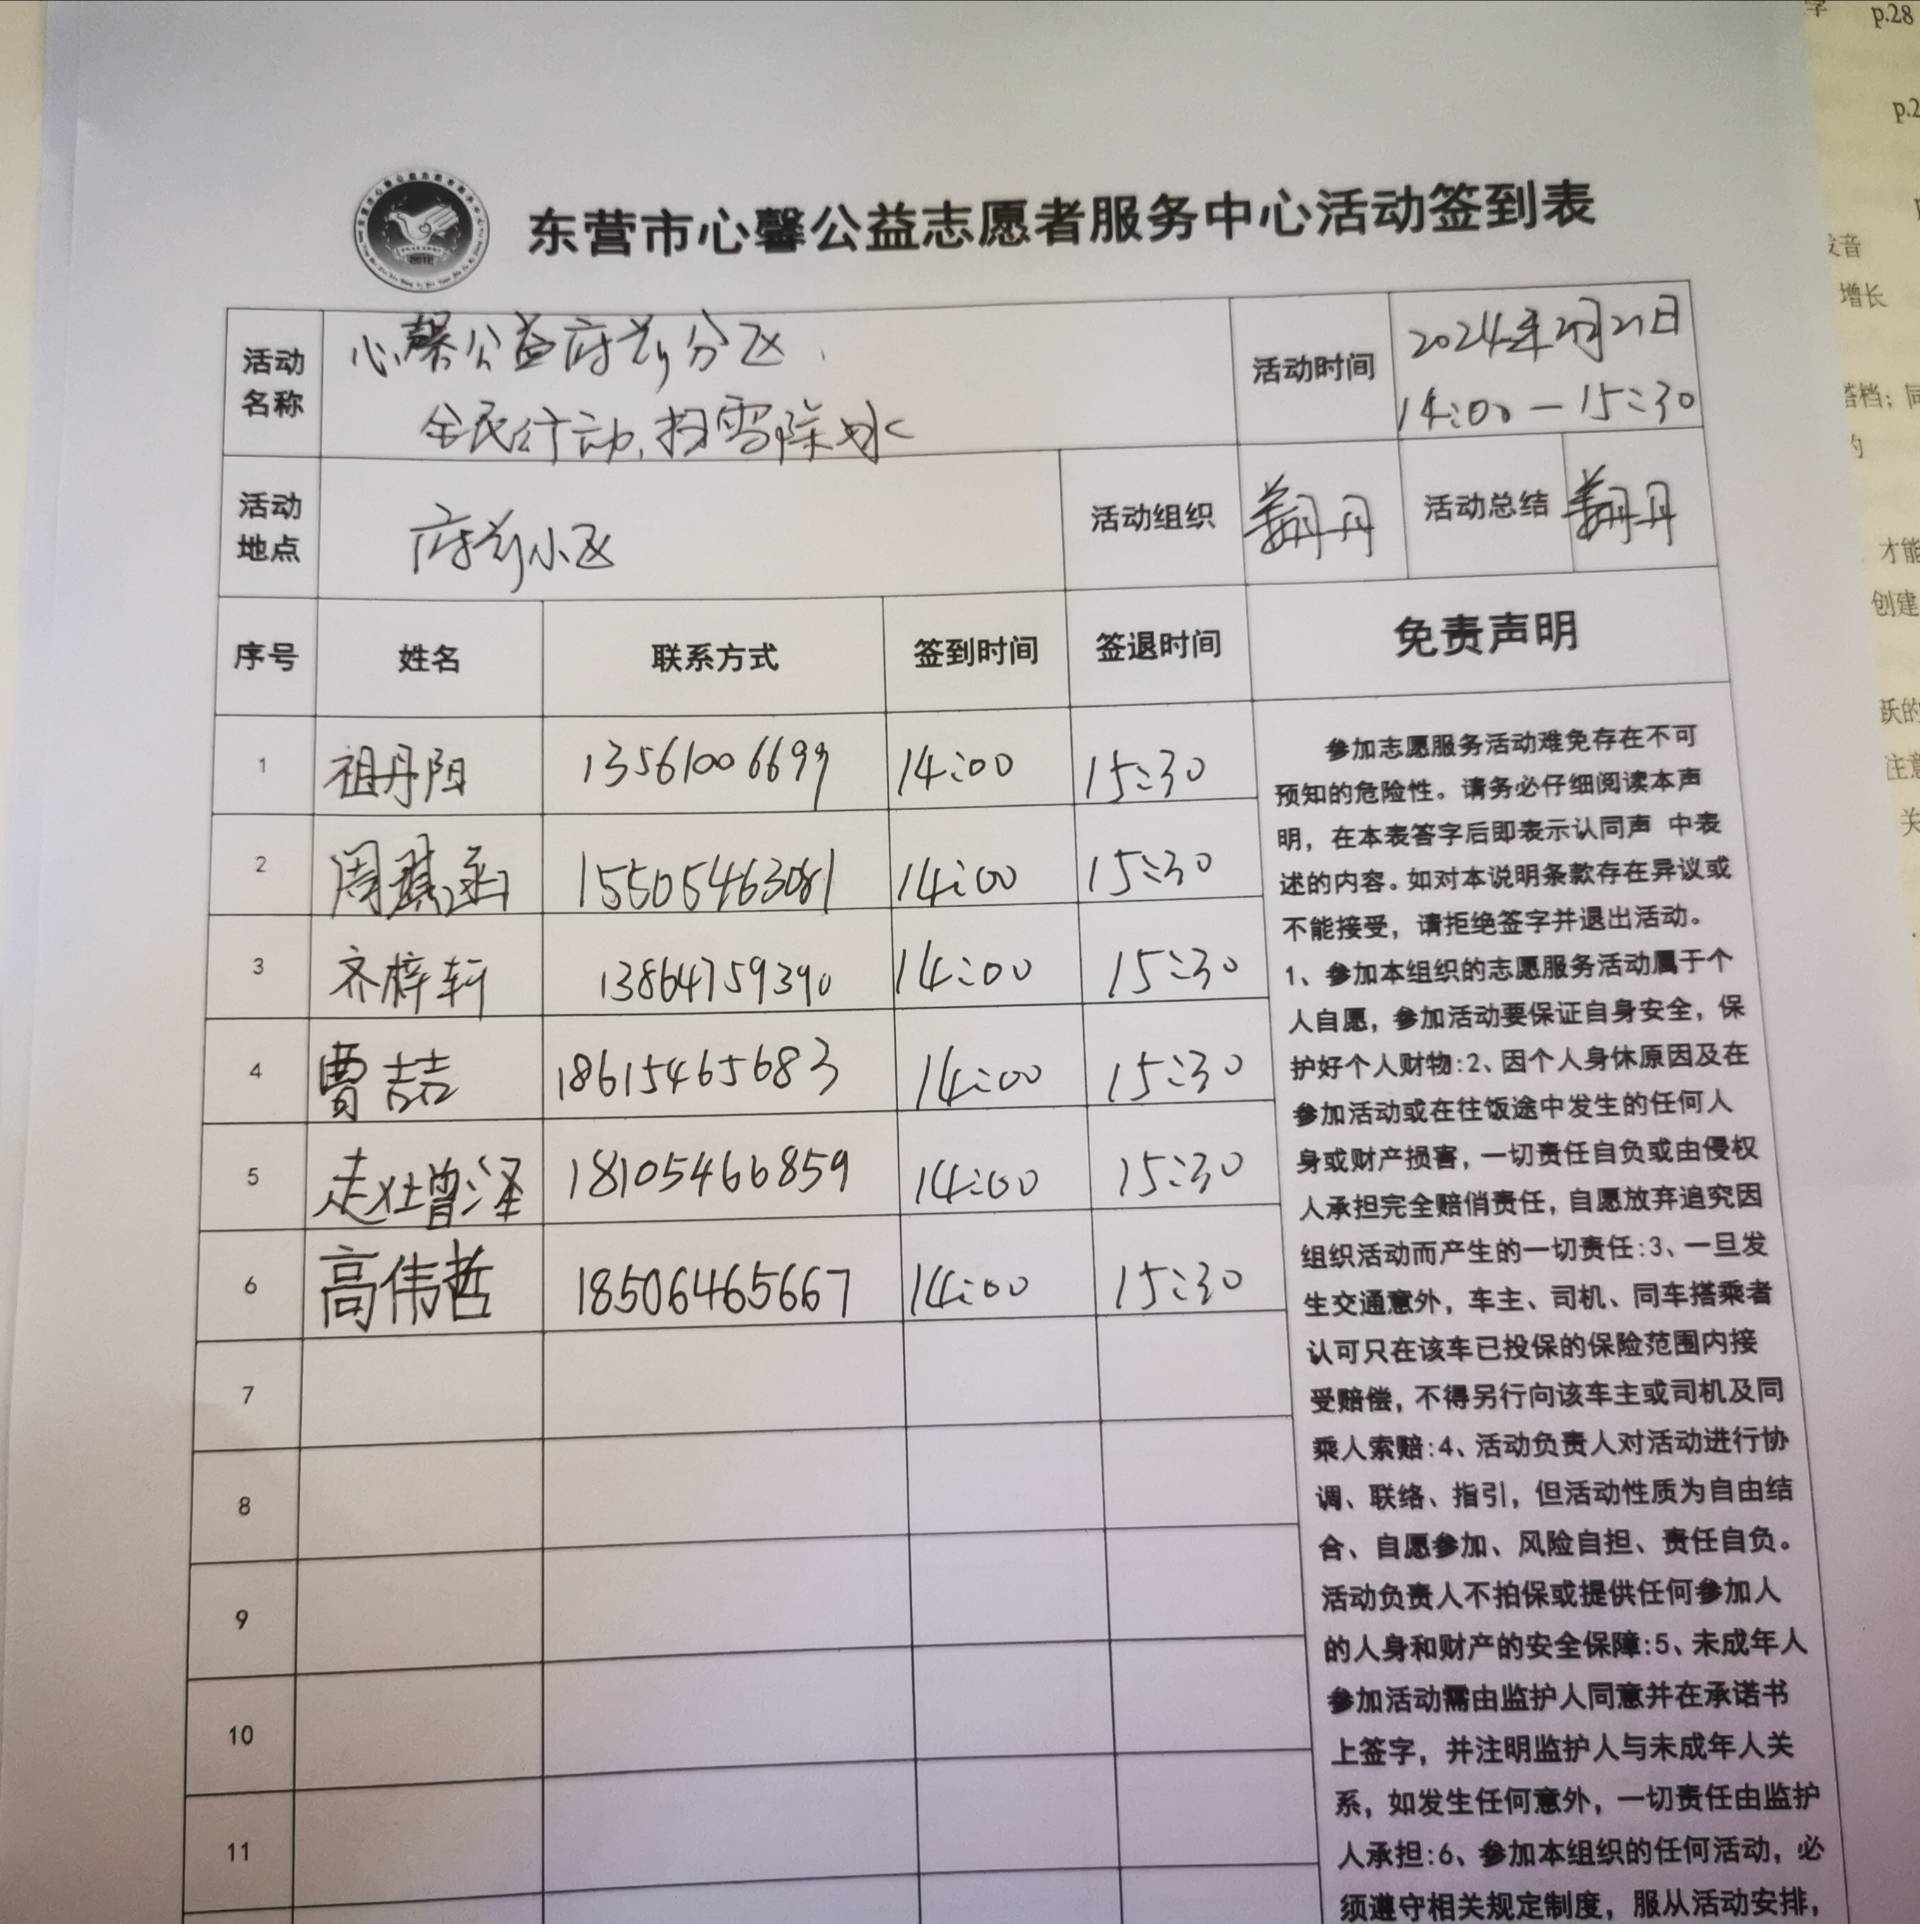 东营市心馨公益志愿者服务中心活动签到表
活动名称
心馨公益府前分区
全民行动,扫雪除冰
活动时间
2024年2月21日
14:00—15:30
活动地点
府前小区
活动组织
姜丹丹
活动总结
姜丹丹
序号 姓名 联系方式 签到时间 签退时间 免责声明
1 祖丹阳 13561006699 14:00 15:30
2 周琪函 15505463081 14:00 15:30
3 齐梓轩 13864759390 14:00 15:30
4 曹喆 18615465683 14:00 15:30
5 增泽 18105466859 14:00 15:30
6 高伟哲 18506465667 14:00 15:30
7
8
9
10
11
参加志愿服务活动难免存在不可
预知的危险性。请务必仔细阅读本声
明，在本表答字后即表示认同声 中表
述的内容。如对本说明条款存在异议或
不能接受，请拒绝签字并退出活动。
1、参加本组织的志愿服务活动属于个
人自愿，参加活动要保证自身安全，保
护好个人财物:2、因个人身休原因及在
参加活动或在往饭途中发生的任何人
身或财产损害，一切责任自负或由侵权
人承担完全赔俏责任，自愿放弃追究因
组织活动而产生的一切责任:3、一旦发
生交通意外，车主、司机、同车搭乘者
认可只在该车已投保的保险范围内接
受赔偿，不得另行向该车主或司机及同
乘人索赔:4、活动负责人对活动进行协
调、联络、指引，但活动性质为自由结
合、自愿参加、风险自担、责任自负。
活动负责人不拍保或提供任何参加人
的人身和财产的安全保障:5、未成年人
参加活动需由监护人同意并在承诺书
上签字，并注明监护人与未成年人关
系，如发生任何意外，一切责任由监护
人承担:6、参加本组织的任何活动，必
须遵守相关规定制度，服从活动安排，
p.28
增长
才能
创建
跃的
注意
关